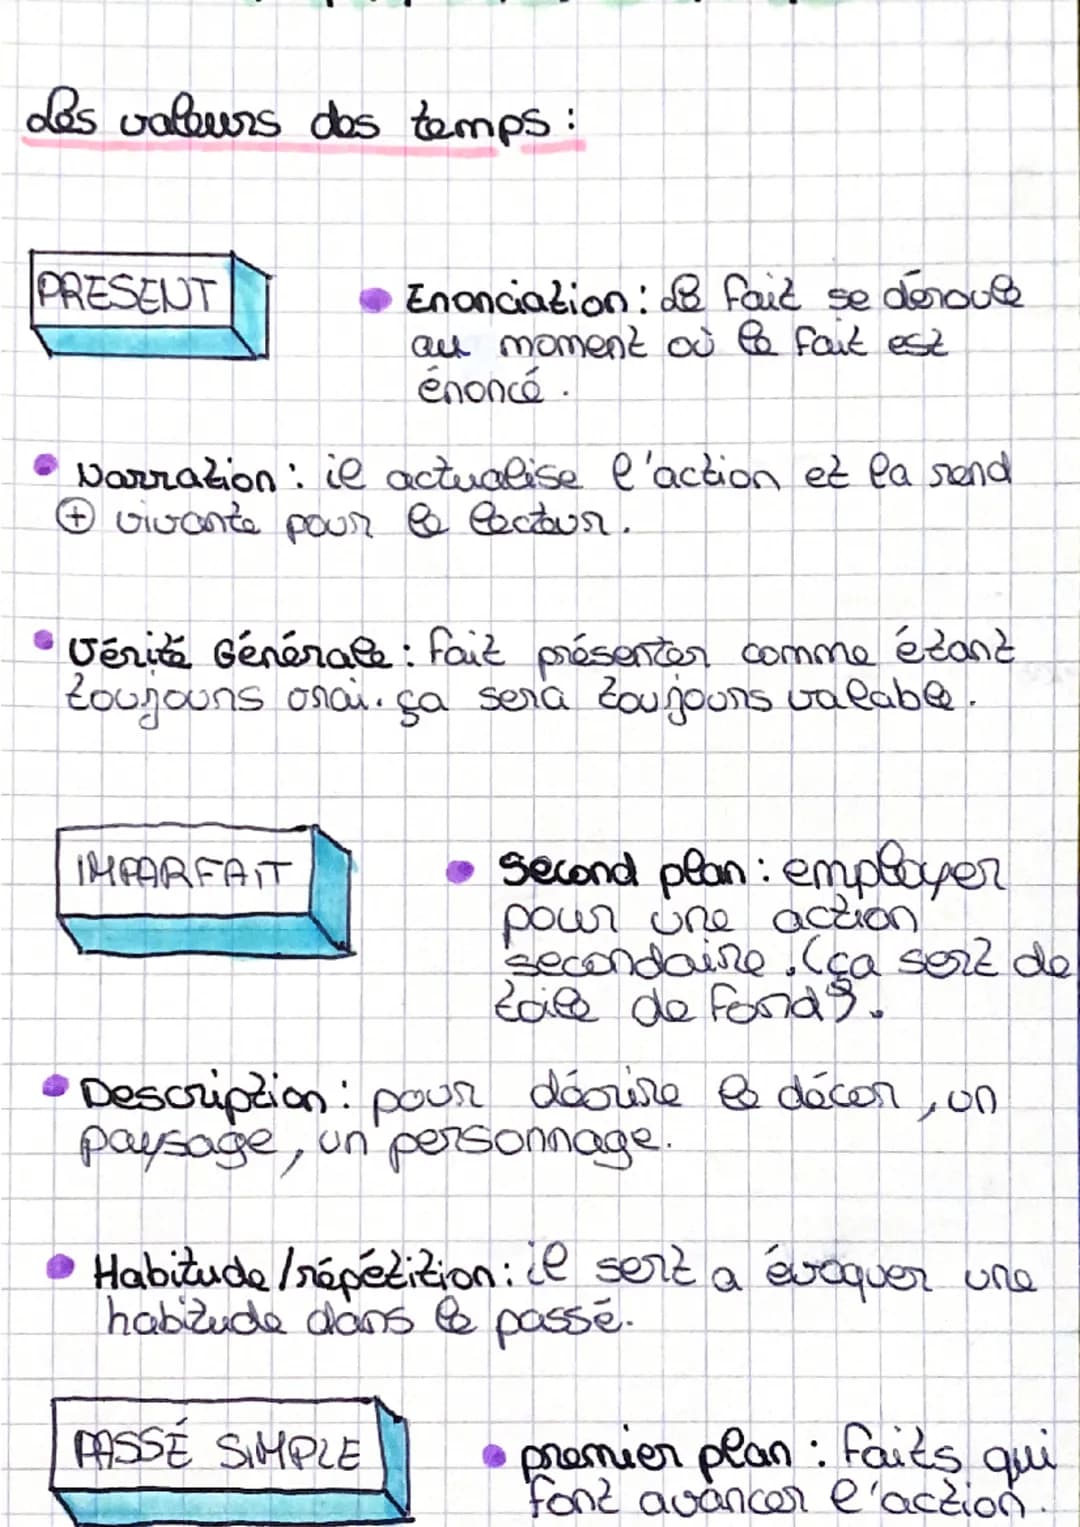 Les valeurs des temps :
PRESENT
• Enonciation : le fait se déroule
au moment où le fait est
énoncé.
• Narration : il actualise l'action et la rend
⊕ vivante pour le lecteur.
• Vérité Générale : fait présenter comme étant
toujours vrai. ça sera toujours valable.
IMPARFAIT
• Second plan : employer
pour une action
secondaire. (ça sert de
toile de fond).
• Description : pour décrire le décor, un
paysage, un personnage.
• Habitude / répétition : il sert a évoquer une
habitude dans le passé.
PASSÉ SIMPLE
• premier plan : faits qui
font avancer l'action.